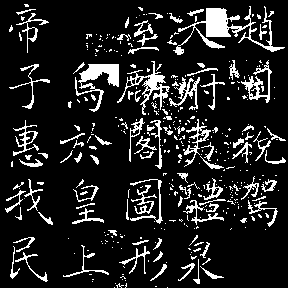 趙田稅駕
天府夷體泉
室麟閣圖形
烏於皇上
帝子惠我民